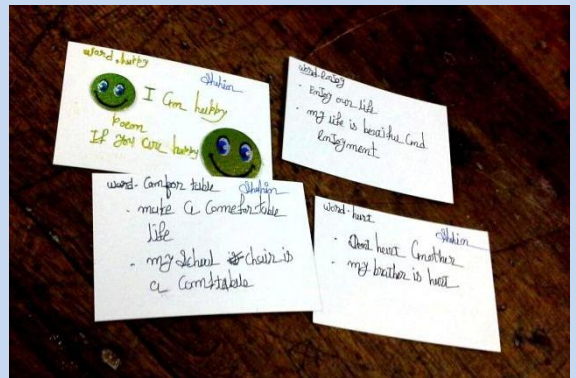 word, huppy
Shahin
I am huppy
Poem
If you are huppy
word-enjoy
• Enjoy our life
• my life is beaitful and
enjoyment
word- comfor table Shahin
• make a comefortable
life
• my school chair is
a comftabale
word- hurt
Shahin
• Dont heurt another
• my brother is heurt